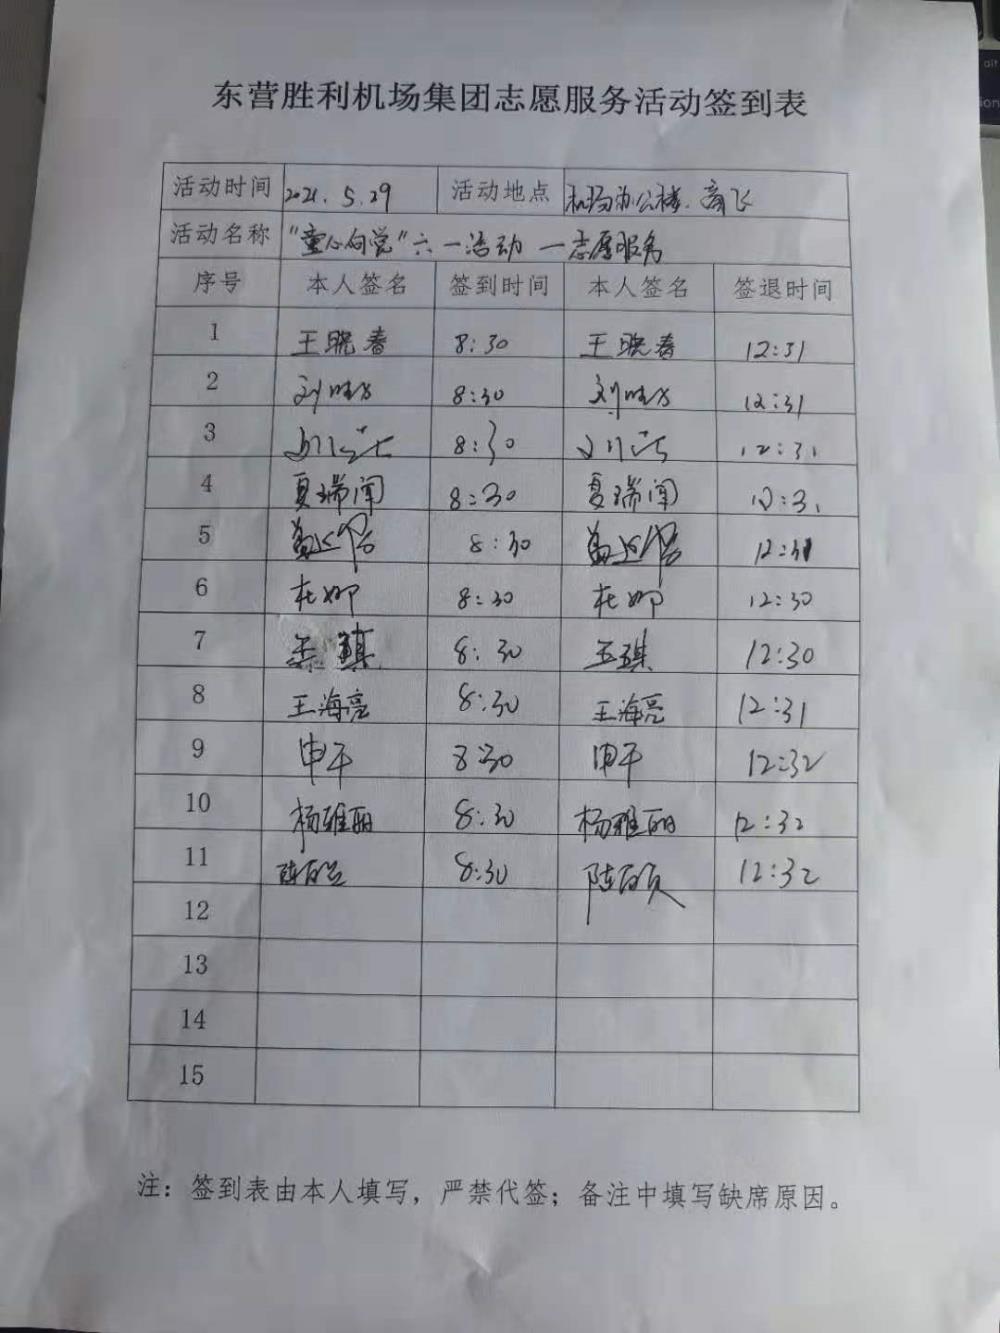 东营胜利机场集团志愿服务活动签到表
活动时间 2021.5.29 活动地点 机场办公楼、商飞
活动名称 "童心向党"六一活动—志愿服务
序号 本人签名 签到时间 本人签名 签退时间
1 王晓春 8:30 王晓春 12:31
2 8:30 12:31
3 8:30 12:31
4 夏瑞闻 8:30 夏瑞闻 12:31
5 8:30 12:31
6 杜娜 8:30 杜娜 12:30
7 8:30 12:30
8 王海亮 8:30 王海亮 12:31
9 申午 8:30 申午 12:32
10 杨雅丽 8:30 杨雅丽 12:32
11 8:30 12:32
12
13
14
15
注：签到表由本人填写，严禁代签；备注中填写缺席原因。
alt